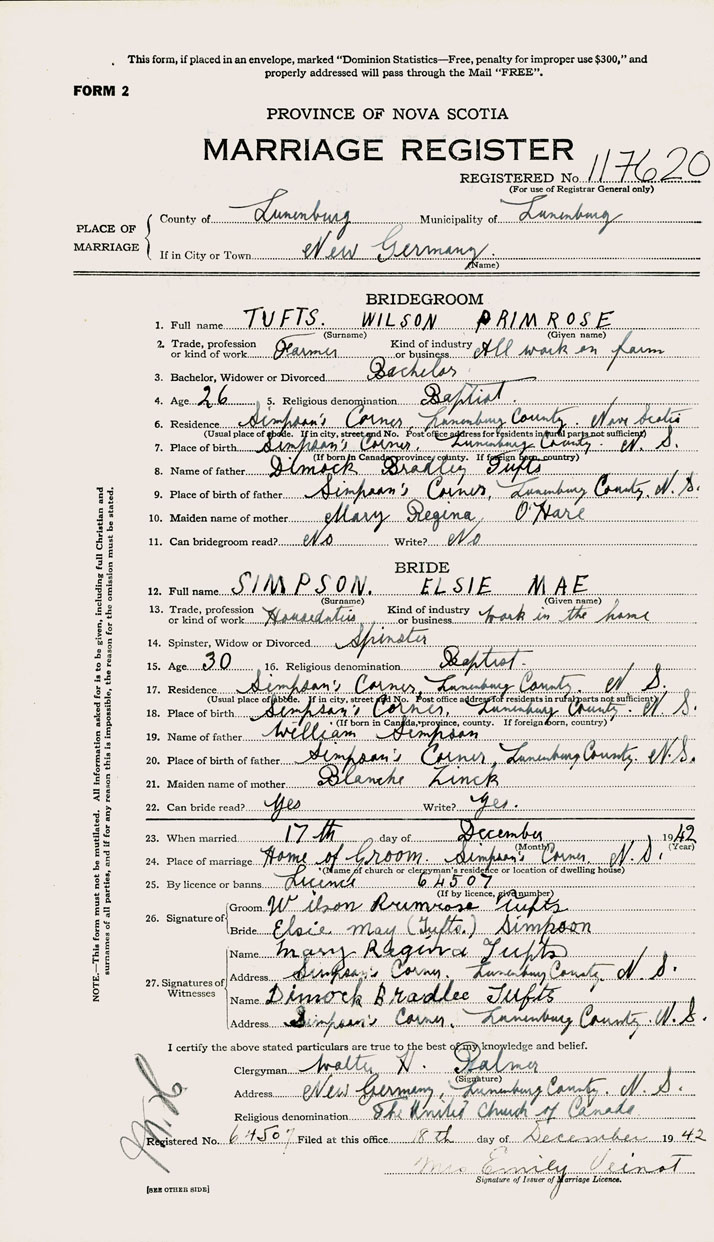 This form, if placed in an envelope, marked "Dominion Statistics—Free, penalty for improper use $300," and
properly addressed will pass through the Mail "FREE".
FORM 2
PROVINCE OF NOVA SCOTIA
MARRIAGE REGISTER
REGISTERED No. 117620
(For use of Registrar General only)
PLACE OF MARRIAGE
County of Lunenburg Municipality of Lunenburg
If in City or Town New Germany.
(Name)
BRIDEGROOM
1. Full name TUFTS. WILSON PRIMROSE
(Surname) (Given name)
2. Trade, profession or kind of work Farmer Kind of industry or business All work on farm
3. Bachelor, Widower or Divorced Bachelor
4. Age 26 5. Religious denomination Baptist.
6. Residence Simpson's Corner, Lunenburg County. Nova Scotia
(Usual place of abode. If in city, street and No. Post office address for residents in rural parts not sufficient)
7. Place of birth Simpson's Corner, Lunenburg County. N. S.
(If born in Canada, province, county. If foreign born, country)
8. Name of father Dimock Bradley Tufts
9. Place of birth of father Simpson's Corner, Lunenburg County. N. S.
10. Maiden name of mother Mary Regina O'Hare
11. Can bridegroom read? No Write? No
BRIDE
12. Full name SIMPSON. ELSIE MAE
(Surname) (Given name)
13. Trade, profession or kind of work Houseduties Kind of industry or business work in the home
14. Spinster, Widow or Divorced Spinster
15. Age 30 16. Religious denomination Baptist.
17. Residence Simpson's Corner, Lunenburg County. N S.
(Usual place of abode. If in city, street and No. Post office address for residents in rural parts not sufficient)
18. Place of birth Simpson's Corner, Lunenburg County. N S.
(If born in Canada, province, county. If foreign born, country)
19. Name of father William Simpson
20. Place of birth of father Simpson's Corner, Lunenburg County. N. S.
21. Maiden name of mother Blanche Zinck
22. Can bride read? Yes Write? Yes.
23. When married 17th day of December 1942
(Month) (Year)
24. Place of marriage Home of Groom. Simpson's Corner, N. S.
(Name of church or clergyman's residence or location of dwelling house)
25. By licence or banns Licence 64507
(If by licence, give number)
26. Signature of
Groom Wilson Primrose Tufts
Bride Elsie May (Tufts.) Simpson
27. Signatures of Witnesses
Name Mary Regina Tufts
Address Simpson's Corner. Lunenburg County, N. S.
Name Dimock Bradlee Tufts
Address Simpson's Corner, Lunenburg County. N. S.
I certify the above stated particulars are true to the best of my knowledge and belief.
Clergyman Walter H. Palmer
(Signature)
Address New Germany, Lunenburg County. N. S.
Religious denomination The United Church of Canada
Registered No. 64507 Filed at this office 18th day of December 1942
Mrs Emily Veinot
Signature of Issuer of Marriage Licence.
[SEE OTHER SIDE]
NOTE.—This form must not be mutilated. All information asked for is to be given, including full Christian and
surnames of all parties, and if for any reason this is impossible, the reason for the omission must be stated.